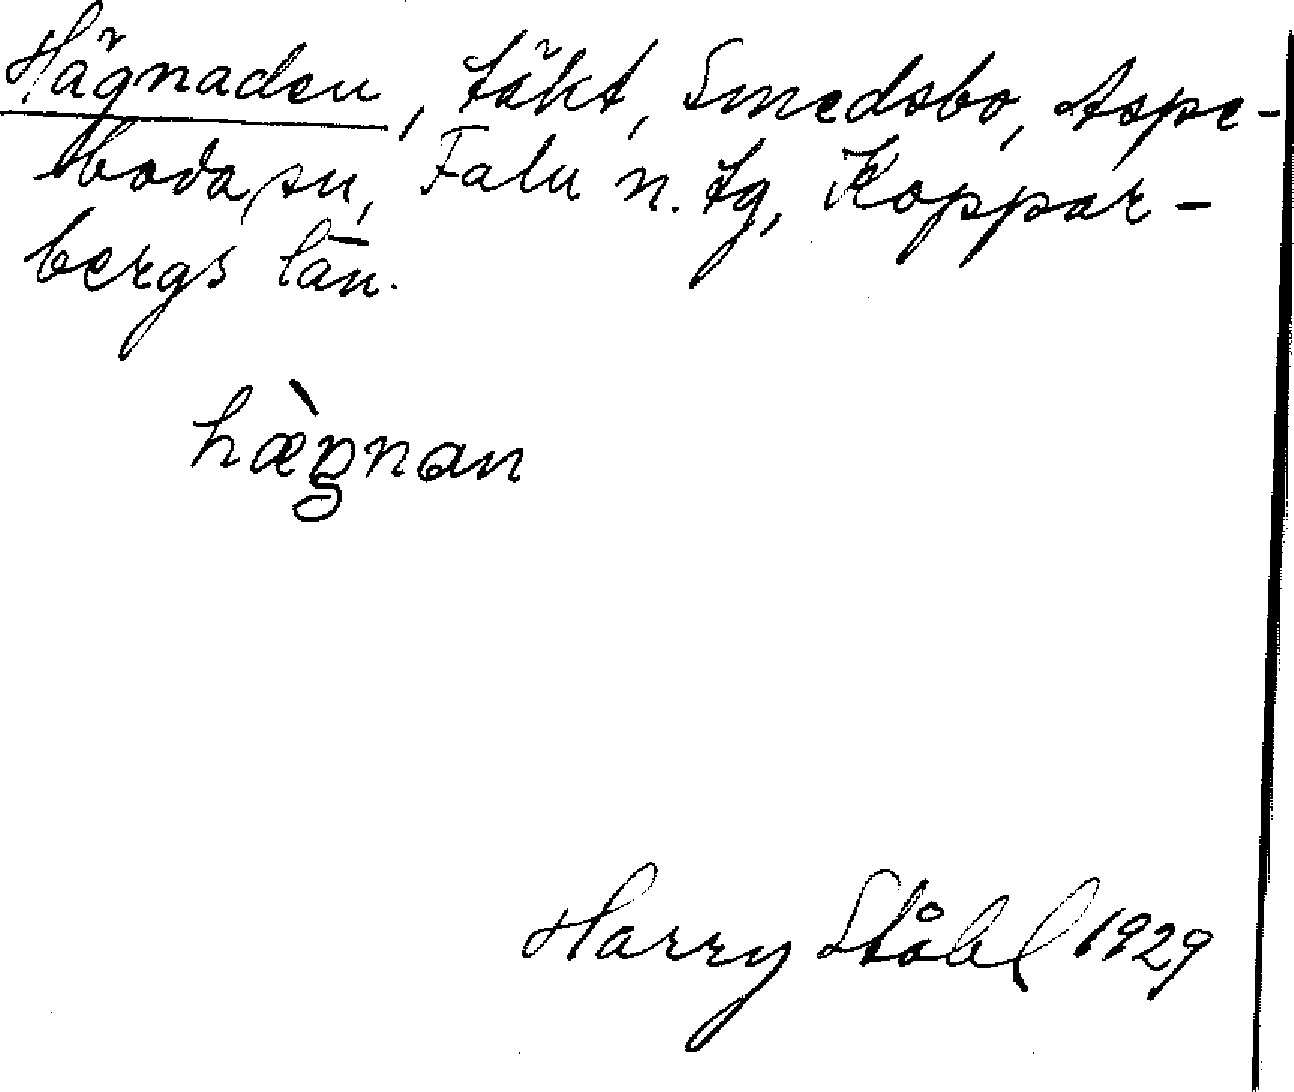 Hägnaden, täkt, Smedsbo, Aspe-
boda sn, Falu n. tg, Koppar-
bergs län.
hægnan
Harry Ståhl 1929